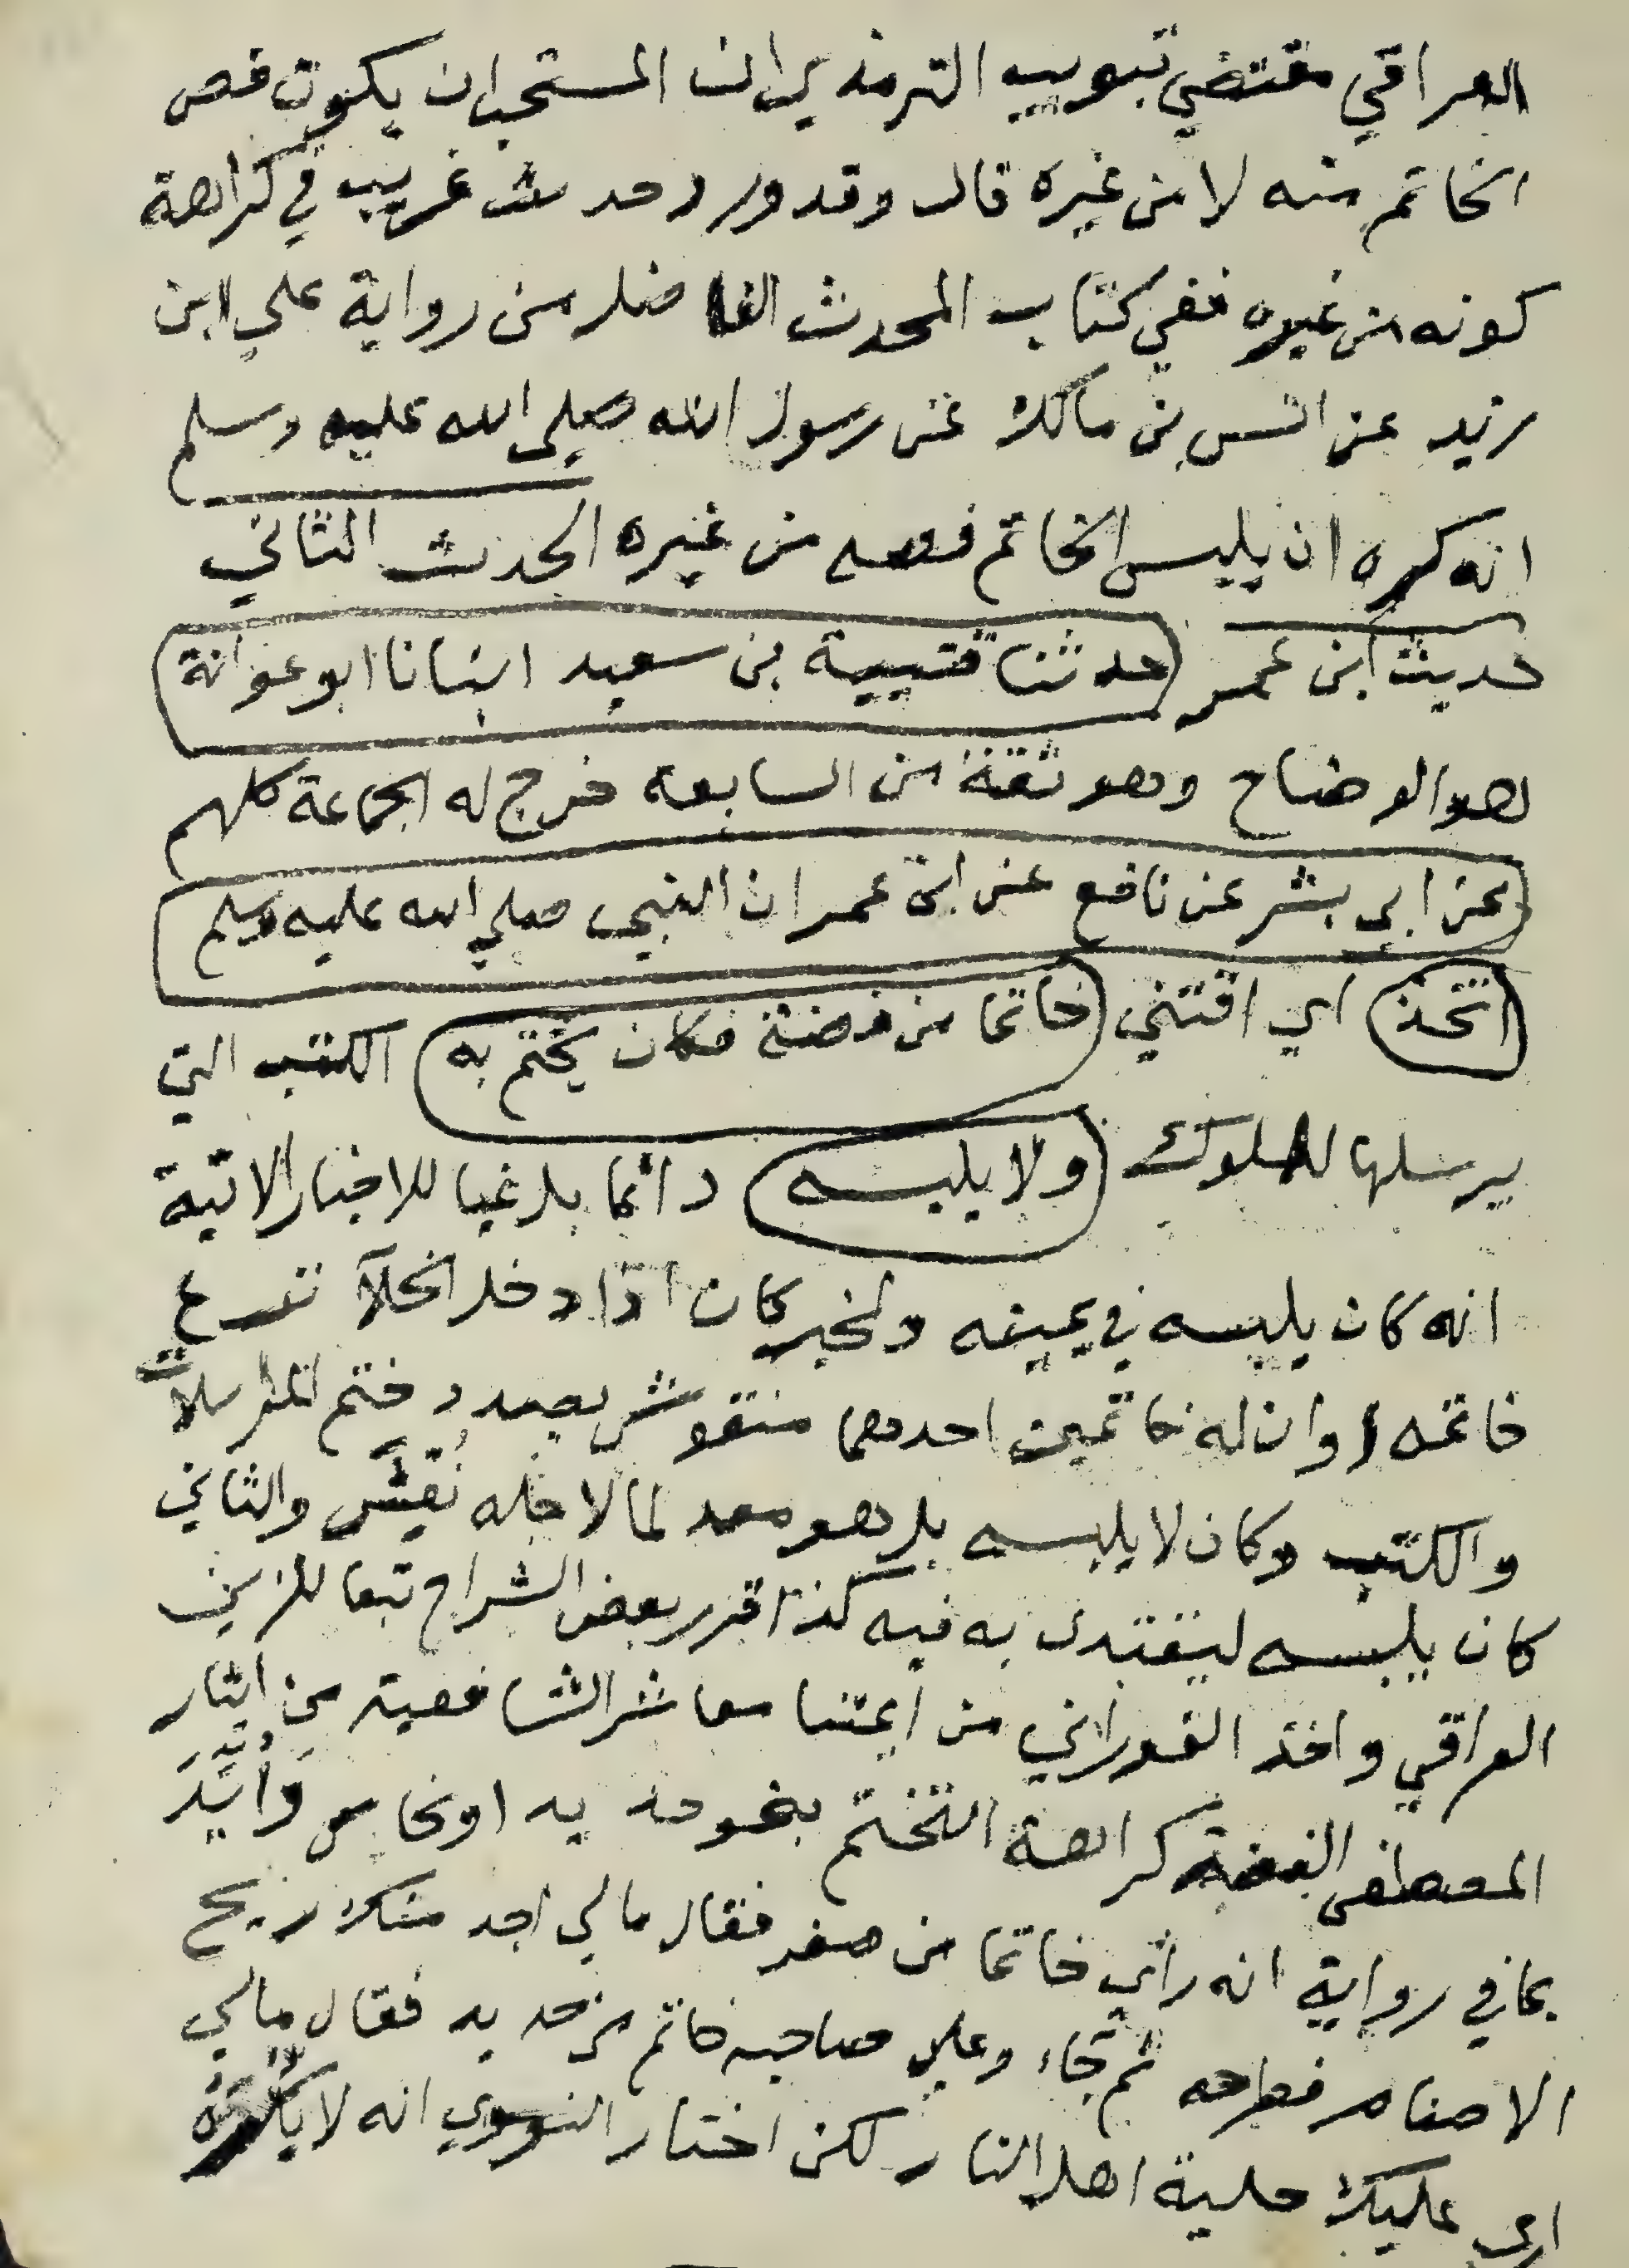 العراقي مقتضي تبويب الترمذي ان المستحب ان يكون فص
الخاتم منه لا من غيره قال وقد ورد حديث غريب في كراهة
كونه من غيره ففي كتاب المحدث الفاضل من رواية علي ابن
زيد عن انس بن مالك عن رسول الله صلى الله عليه وسلم
انه كره ان يلبس الخاتم فصه من غيره الحديث الثاني
حديث ابن عمر (حدثنا قتيبة بن سعيد انبانا ابو عوانة
هو الوضاح وهو ثقة من السابعة خرج له الجماعة كلهم
(عن ابي بشر عن نافع عن ابن عمر ان النبي صلي الله عليه وسلم
اتخذ) اي اقتني (خاتما من فضة فكان يختم به) الكتب التي
يرسلها للملوك (ولا يلبسه) دائما بل غبا للاخبار الاتية
انه كان يلبسه في يمينه ولخبر كان اذا دخل الخلآ نزع
خاتمه او ان له خاتمين احدهما منقوش بصدد ختم المراسلات
والكتب وكان لا يلبسه بل هو معد لما لاجله نُقِشَ والثاني
كان يلبسه ليقتدى به فيه كذا قرر بعض الشراح تبعا للزين
العراقي واخذ الفوراني من ايمتنا معاشر الشافعية من ايثار
المصطفى الفضة كراهة التختم بنحو حديد او نحاس وَأُيِّدَ
بما في رواية انه رأي خاتما من صفر فقال ما لي اجد منك ريح
الاصنام فطرحه ثم جاء وعلي صاحبه خاتم من حديد فقال مالي
اري عليك حلية اهل النار لكن اختار النووي انه لا يكره